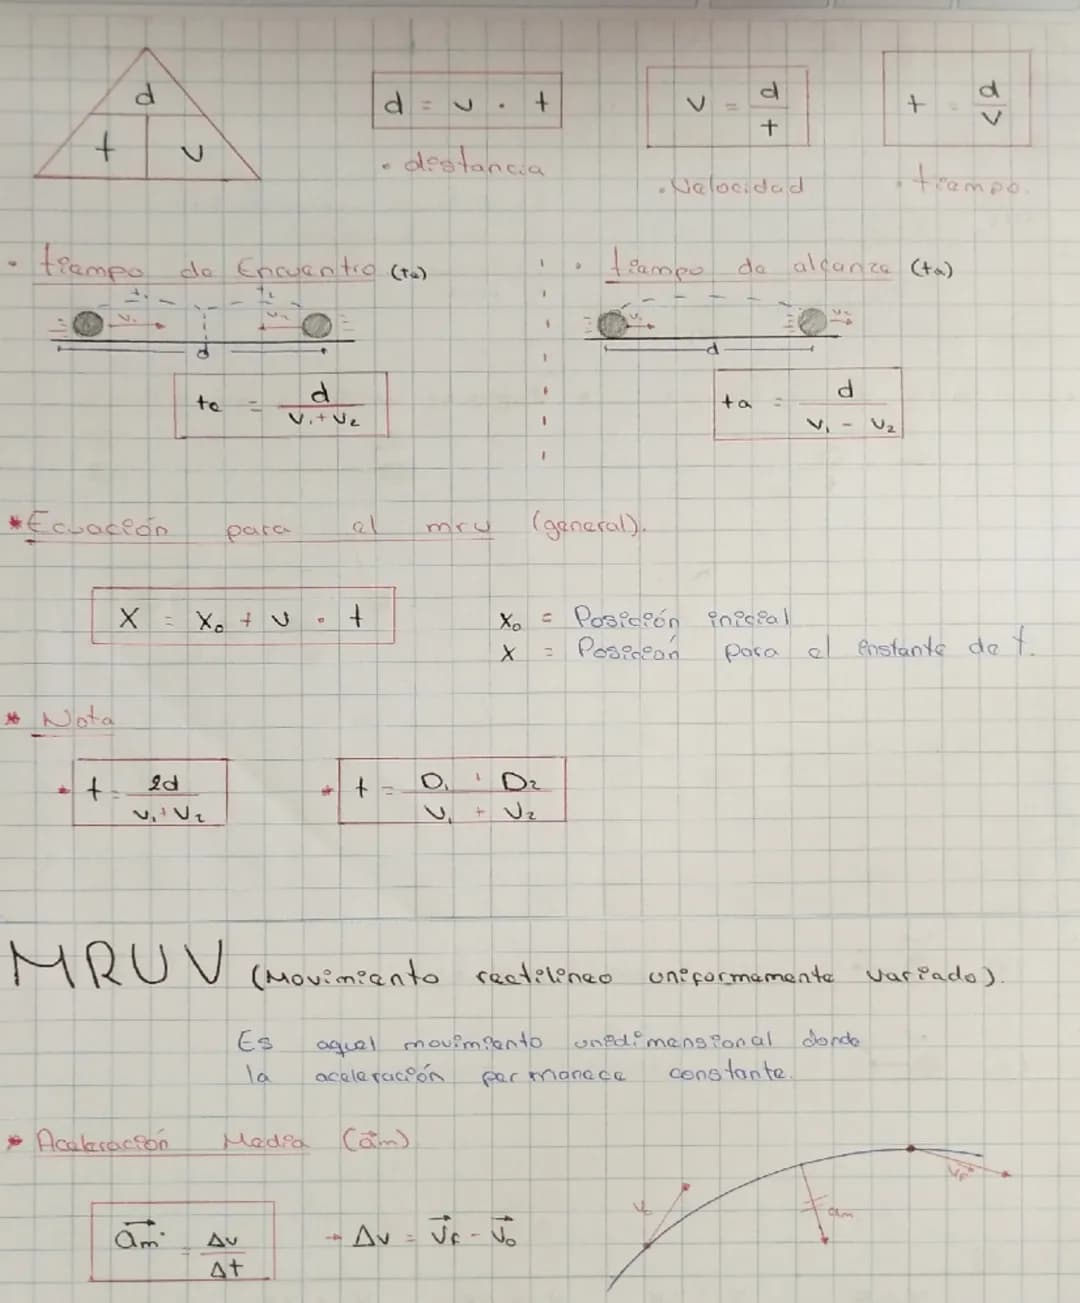 d
t v
d = v . t
v = d/t
t = d/v
• distancia
• Velocidad
• tiempo.
• tiempo de Encuentro (te)
• tiempo de alcance (ta)
t₁ t₂
v₁ v₂
d
v₁ v₂
d
te = d/(v₁ + v₂)
ta = d/(v₁ - v₂)
* Ecuación para el mru (general).
X = X₀ + v . t
X₀ = Posición inicial
X = Posición para el instante de t.
* Nota
* t = 2d/(v₁ + v₂)
* t = (D₁ + D₂)/(v₁ + v₂)
MRUV (Movimiento rectilíneo uniformemente variado).
Es aquel movimiento unidimensional donde
la aceleración permanece constante.
* Aceleración Media (a⃗m)
a⃗m = Δv/Δt
→ Δv = v⃗f - v⃗₀
vf
am